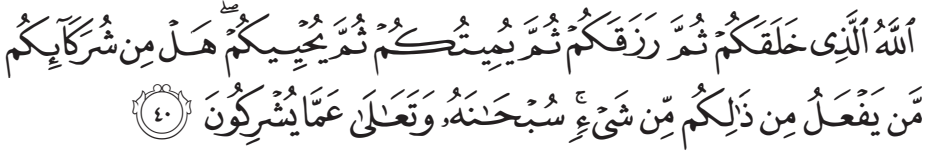 ٱللَّهُ ٱلَّذِى خَلَقَكُمْ ثُمَّ رَزَقَكُمْ ثُمَّ يُمِيتُكُمْ ثُمَّ يُحْيِيكُمْ ۖ هَلْ مِن شُرَكَآئِكُم
مَّن يَفْعَلُ مِن ذَٰلِكُم مِّن شَىْءٍ ۚ سُبْحَـٰنَهُۥ وَتَعَـٰلَىٰ عَمَّا يُشْرِكُونَ ٤٠